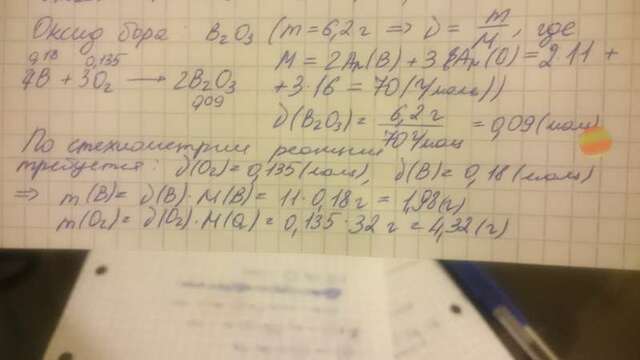 Оксид бора: B₂O₃ (m = 6,2 г ⇒ ν = m/M, где
M = 2Ar(B) + 3 Ar(O) = 2·11 +
0,18 0,135
4B + 3O₂ → 2B₂O₃ + 3·16 = 70 (г/моль))
0,09
ν(B₂O₃) = 6,2 г / 70 г/моль = 0,09 (моль)
По стехиометрии реакции
требуется: ν(O₂) = 0,135 (моль), ν(B) = 0,18 (моль)
⇒ m(B) = ν(B)·M(B) = 11·0,18 г = 1,98 (г)
m(O₂) = ν(O₂)·M(O₂) = 0,135·32 г = 4,32 (г)